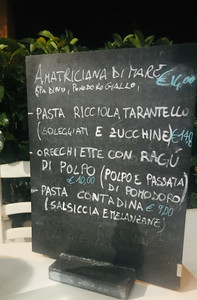 AMATRICIANA DI MARE €16,00
SPADINO, POMODORO GIALLO,
- PASTA RICCIOLA TARANTELLO
(SOLEGGIATI E ZUCCHINE) €14,00
- ORECCHIETTE CON RAGÙ
DI POLPO (POLPO E PASSATA
€10,00 DI POMODORO)
- PASTA CONTADINA €9,00
(SALSICCIA E MELANZANE)